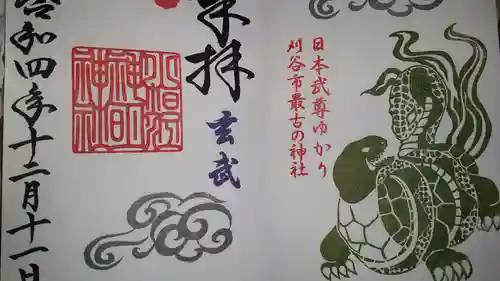 日本武尊ゆかり
刈谷市最古の神社
奉拝
玄武
令和四年十二月十一日